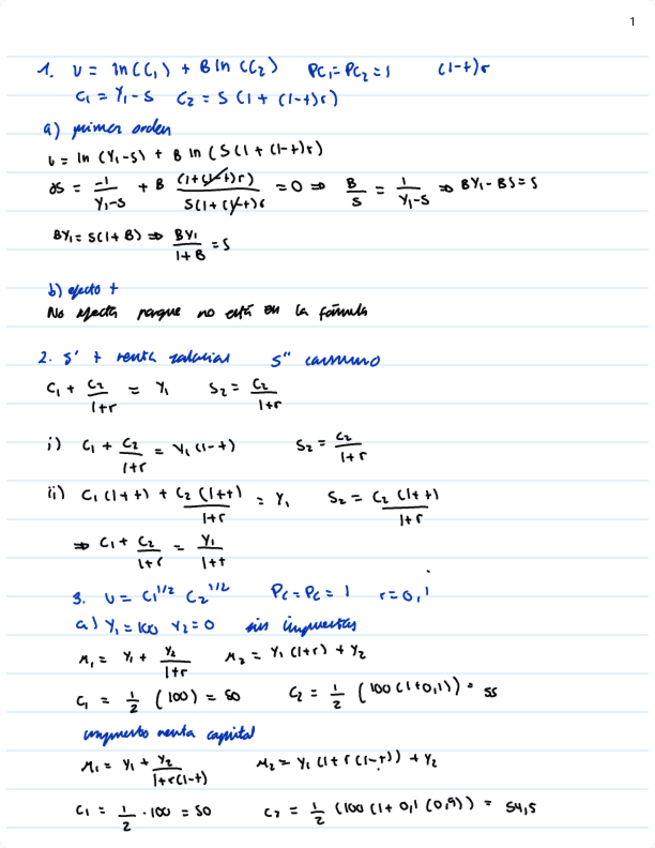 1
1. U = ln(C₁) + B ln(C₂) PC₁=PC₂=1 (1-t)r
C₁ = Y₁-S C₂ = S(1 + (1-t)r)
a) primer orden
U = ln(Y₁-S) + B ln(S(1 + (1-t)r)
∂S = -1/(Y₁-S) + B (1+(1-t)r)/(S(1+(1-t)r) = 0 ⇒ B/S = 1/(Y₁-S) ⇒ BY₁-BS=S
BY₁ = S(1+B) ⇒ BY₁/(1+B) = S
b) efecto t
No afecta porque no está en la fórmula
2. S' t renta salarial S'' consumo
C₁ + C₂/(1+r) = Y₁ S₂ = C₂/(1+r)
i) C₁ + C₂/(1+r) = Y₁(1-t) S₂ = C₂/(1+r)
ii) C₁(1+t) + C₂(1+t)/(1+r) = Y₁ S₂ = C₂(1+t)/(1+r)
⇒ C₁ + C₂/(1+r) = Y₁/(1+t)
3. U = C₁^1/2 C₂^1/2 Pc=Pc=1 r=0,1
a) Y₁=100 Y₂=0 sin impuestos
M₁ = Y₁ + Y₂/(1+r) M₂ = Y₁(1+r) + Y₂
C₁ = 1/2 (100) = 50 C₂ = 1/2 (100(1+0,1)) = 55
impuesto renta capital
M₁ = Y₁ + Y₂/(1+r(1-t)) M₂ = Y₁(1+r(1-t)) + Y₂
C₁ = 1/2 · 100 = 50 C₂ = 1/2 (100(1+0,1(0,9)) = 54,5